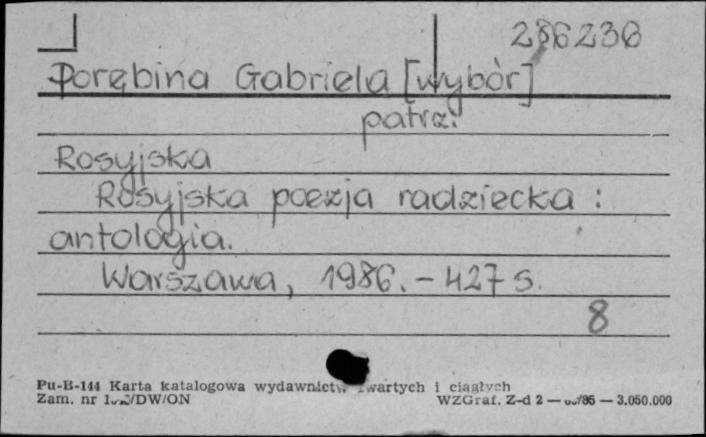 286236
Porębina Gabriela [wybór]
patrz:
Rosyjska
Rosyjska poezja radziecka :
antologia.
Warszawa, 1986. – 427 s.
8
Pu-B-144 Karta katalogowa wydawnictw zwartych i ciągłych
Zam. nr /DW/ON WZGraf. Z-d 2 — /86 — 3.050.000